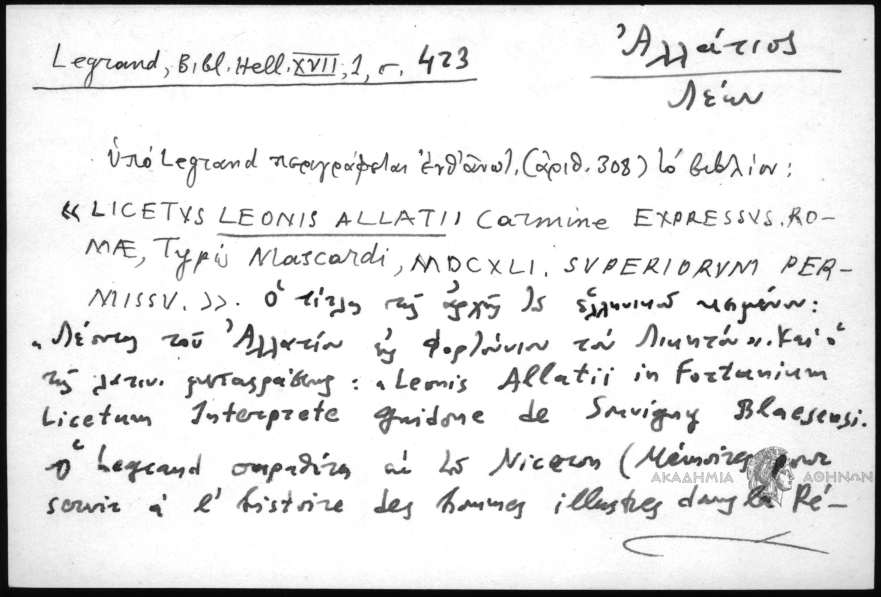 Legrand, Bibl. Hell. XVII, 1, σ. 423
Ἀλλάτιος
Λέων
ὑπό Legrand περιγράφεται ἐνθ' ἀνωτ. (ἀριθ. 308) τό βιβλίον:
«LICETVS LEONIS ALLATII Carmine EXPRESSVS. RO-
MÆ, Typis Mascardi, MDCXLI. SVPERIORVM PER-
MISSV.». Ὁ τίτλος τῆς ἀρχῆς τοῦ ἑλληνικοῦ κειμένου:
«Λέοντος τοῦ Ἀλλατίου εἰς Φορτούνιον τόν Λικητόν». Καί ὁ
τῆς λατιν. μεταφράσεως: «Leonis Allatii in Fortunium
Licetum Interprete Guidone de Souvigny Blaesensi.
Ὁ Legrand παραθέτει ἐκ τοῦ Niceron (Mémoires pour
servir à l'histoire des hommes illustres dans la Ré-
ΑΚΑΔΗΜΙΑ ΑΘΗΝΩΝ